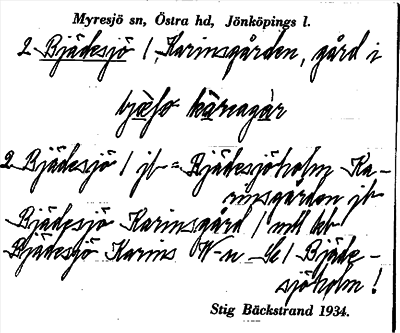 Myresjö sn, Östra hd, Jönköpings l.
2 Bjädesjö 1, Karinsgården, gård i
bjæsο karnagar
2 Bjädesjö 1 jb = Bjädesjöholm Ka-
rinsgården jb
Bjädesjö Karinsgård / mtl kb
Bjädesjö Karins N-n Se! Bjäde-
sjöholm!
Stig Bäckstrand 1934.